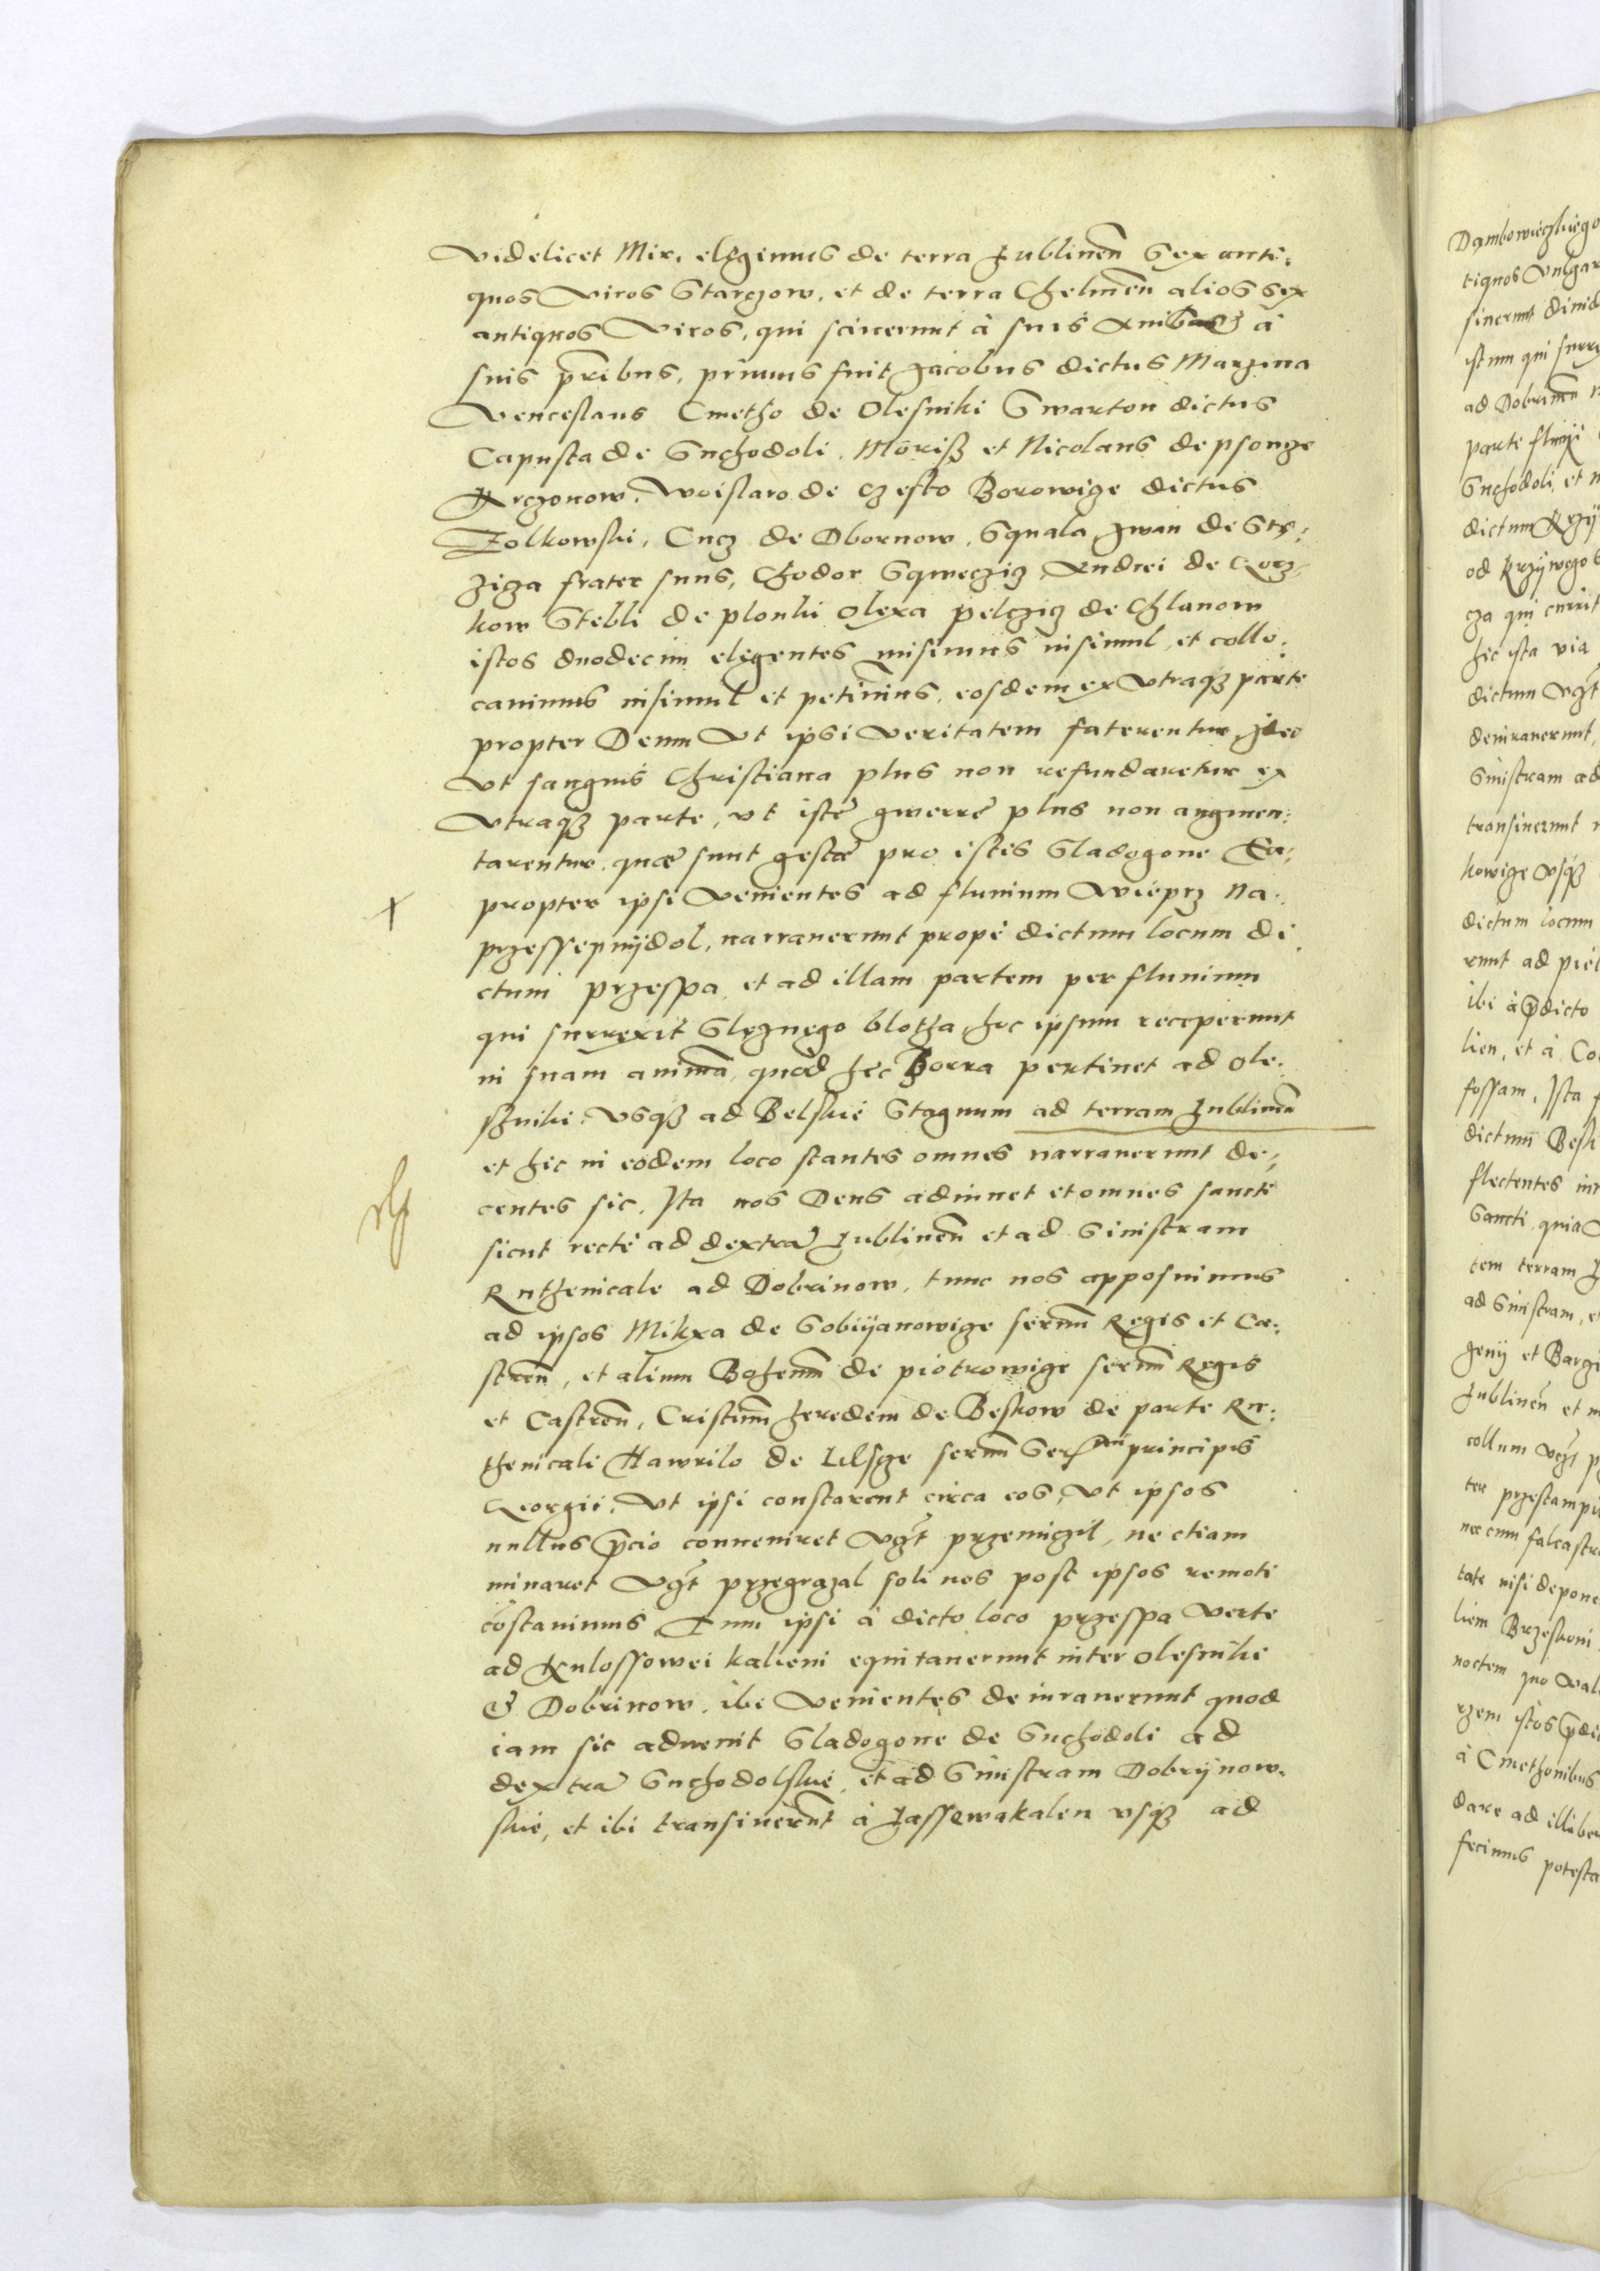 Videlicet Mir, elegimus de terra Lublinen̄ Sex anti:
quos Viros Starczow, et de terra Chelmen̄ alios sex
antiquos Viros, qui sciverunt à suis Avibus à
suis p̄ribus, primus fuit Jacobus dictus Marzina
Venceslaus Cmetho de Olesniki Swarton dictus
Capusta de Suchodoli, Moriss et Nicolaus de psonze
Krczonow, Woislaw de czesto Borowize dictus
Zolkowski, Cucz de Obornow, Squala Jwan de Strz:
ziza frater suus, Chodor Sqweczicz Andrei de Lorz:
kow Stebli de plonki Olexa pelczicz de Chlanow
istos duodecim eligentes misimus insimul, et collo:
cavimus insimul et petivimus, eosdem ex Utraqз parte
propter Deum Ut ipsi Veritatem faterentur, nec
Ut sanguis Christiana plus non refundaretur ex
Utraqз parte, ut iste gwerre plus non augmen:
tarentur, quæ sunt gestæ pro istis Gladogone Ea:
propter ipsi Venientes ad fluvium Wieprz Na:
przessepnijdol, narraverunt propè dictum locum di
ctum Przespa, et ad illam partem per fluvium
qui surrexit Slyznego blotha, hic ipsum receperunt
in suam animā, quòd hec Zorra pertinet ad Ole:
szniki, Usqз ad Belskie Stagnum ad terram Lublinen̄
et hic in eodem loco stantes omnes narraverunt di:
centes sic, Ita nos Deus adiuvet et omnes sancti
sicut rectè ad dextrā Lublinen̄ et ad Sinistram
Ruthenicale ad Dobrinow, tunc nos apposuimus
ad ipsos Mikxa de Sobiyanowize servum Regis et Ca:
stren̄, et alium Bohenum de piotrowize servum Regis
et Castren̄, Cristinum heredem de Beskow de parte Ru:
thenicali Hawrilo de Ulsze servum principis
Georgii, Ut ipsi constarent circa eos, Ut ipsos
nullus p̄cio conveniret vgt przemiczil, ne etiam
minaret Vgt przegrazal soli nos post ipsos remoti
cōstavimus, Tum ipsi à dicto loco przespa Verte
ad Kulossowei kalieni equitaverunt inter Olesniki
& Dobrinow, ibi Venientes deiuraverunt quod
iam sic advenit Gladogone de Suchodoli ad
dextrā Suchodolskie, et ad Sinistram Dobrynow:
skie, et ibi transiverunt à Jassewakalen usqз ad
Dambowieczkiego
tiquos Vulgar
siverunt divid
istum qui surre
ad Dobrinen
parte fluvii
Suchodoli, et
dictum Krzy
od Krzywego
za qui currit
hic ista via
dictum vgt
deiuraverunt,
Sinistram ad
transiverunt
kowize usqз
dictum locum
runt ad
ibi à p̄dicto
lien, et à
fossam, Ista
dictum Besk
flectentes
Sancti, quia
tem terram
ad Sinistram,
geny et
Lublinen̄ et
collum vgt
ter przestamp
nec cum falcastr
tate nisi depone
liem Brzeskoni
noctem
istos p̄di
à Cmethonibus
dare ad
fecimus potesta